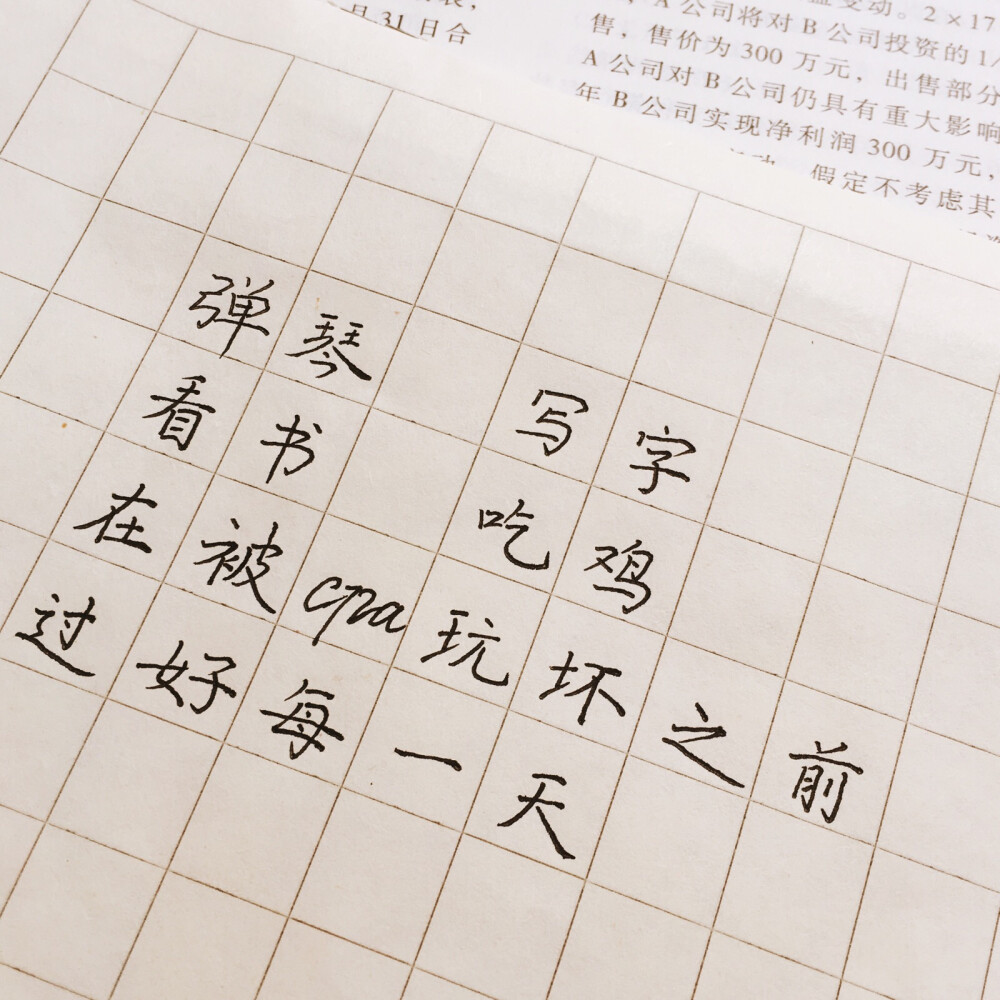 月31日合
盈变动。2×17
A公司将对B公司投资的1/
售，售价为300万元，出售部分
A公司对B公司仍具有重大影响
年B公司实现净利润300万元，
假定不考虑其
弹琴 写字
看书 吃鸡
在被cpa玩坏之前
过好每一天